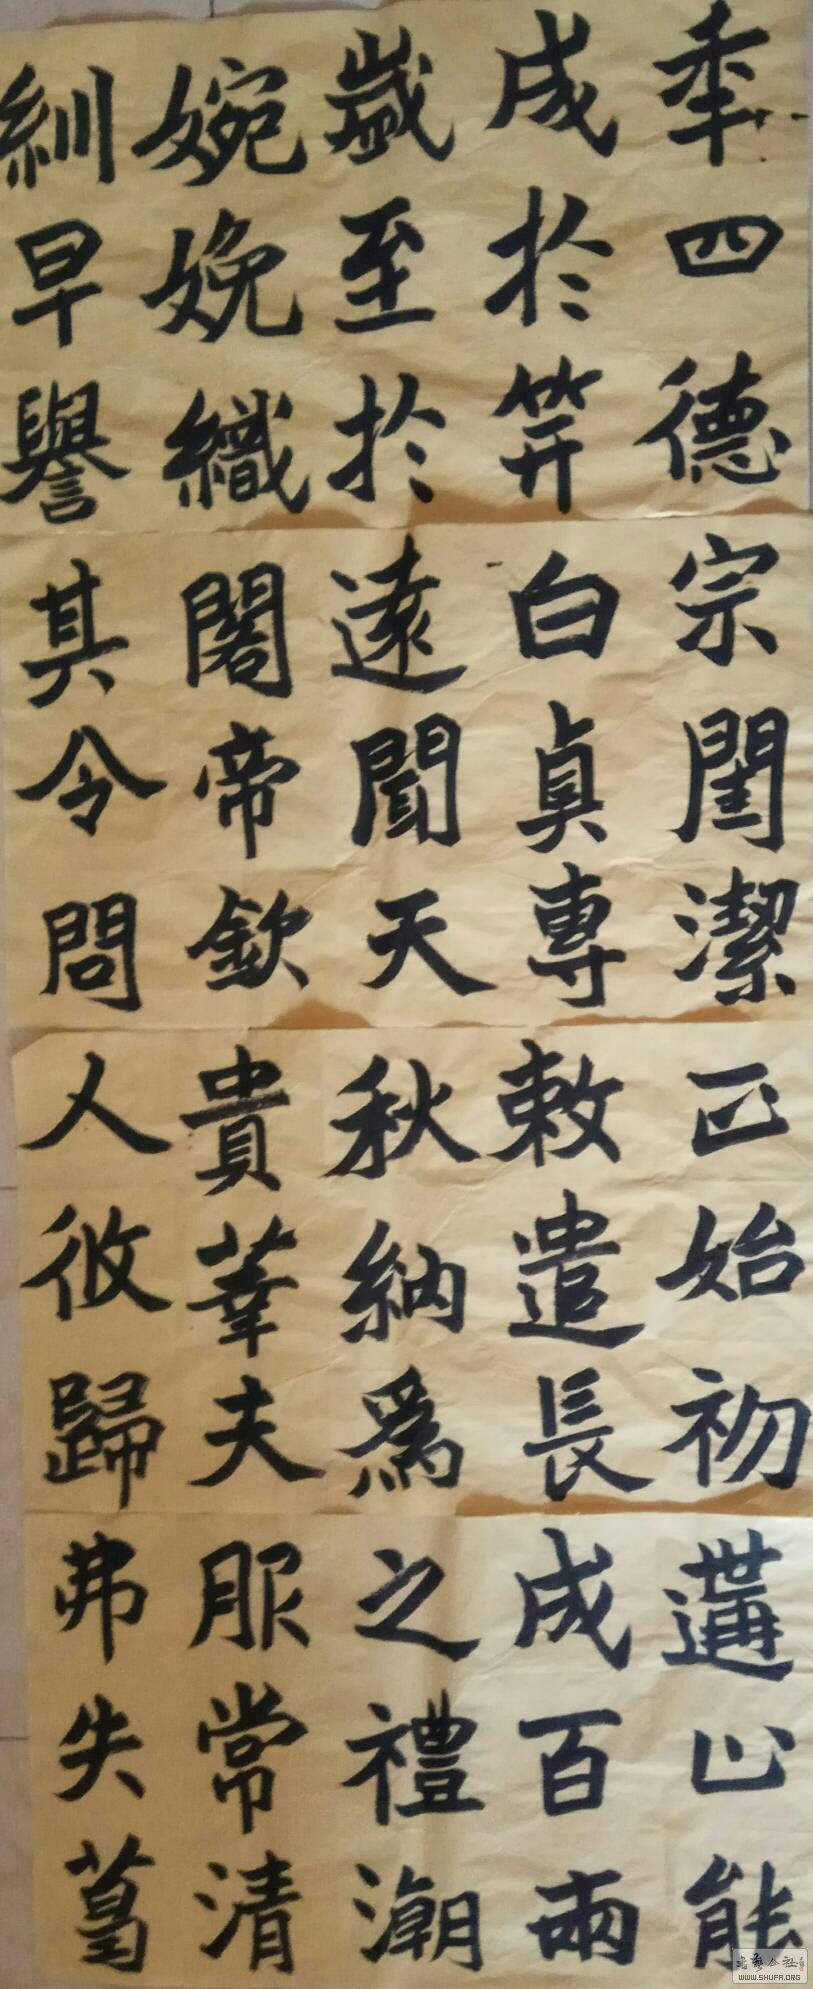 年四德宗閨潔正始初遘止能
成於笄白真專敕遣長成百兩
歲至於遠聞天秋納為之禮潮
婉娩織闍帝欽貴華夫服常清
紃早譽其令問人攸歸弗失葛
WWW.SHUFA.ORG